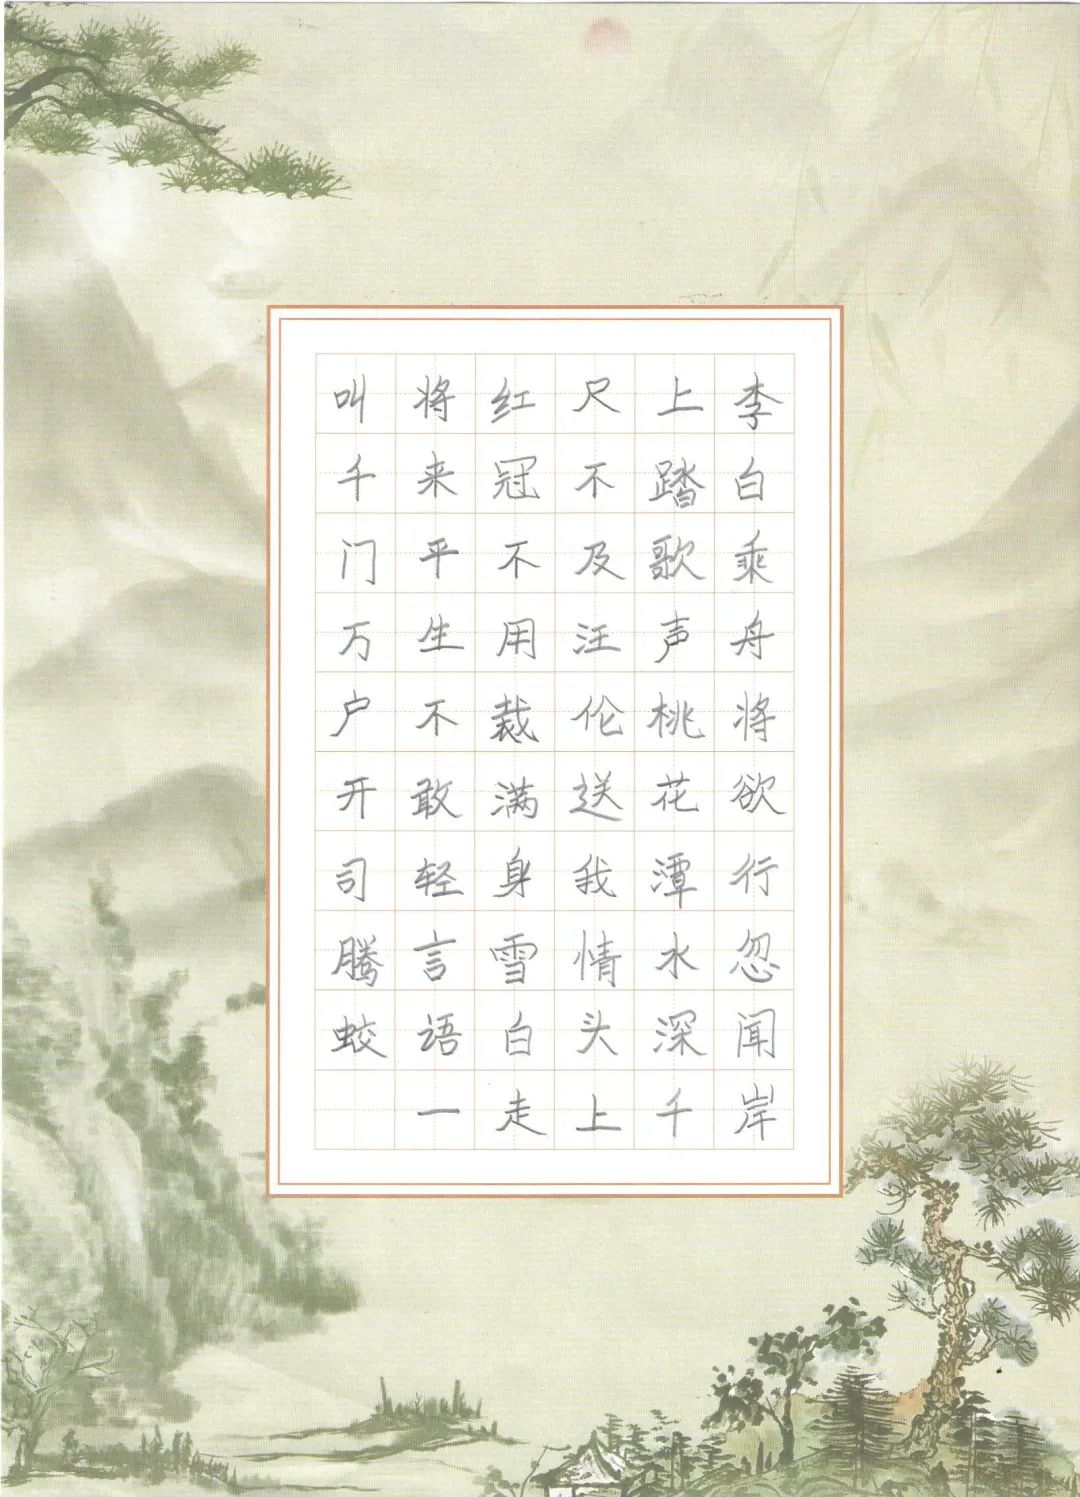 李白乘舟将欲行忽闻岸
上踏歌声桃花潭水深千
尺不及汪伦送我情头上
红冠不用裁满身雪白走
将来平生不敢轻言语一
叫千门万户开司腾蛟